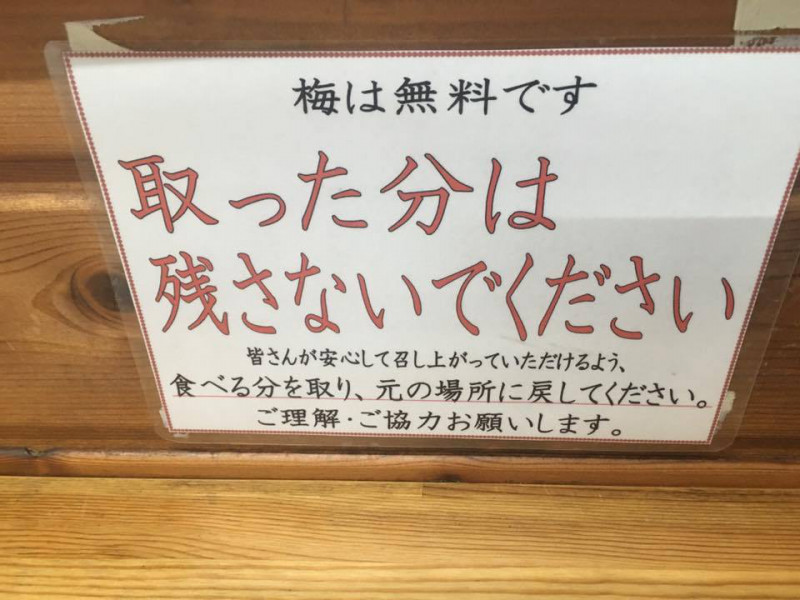 梅は無料です
取った分は
残さないでください
皆さんが安心して召し上がっていただけるよう、
食べる分を取り、元の場所に戻してください。
ご理解・ご協力お願いします。